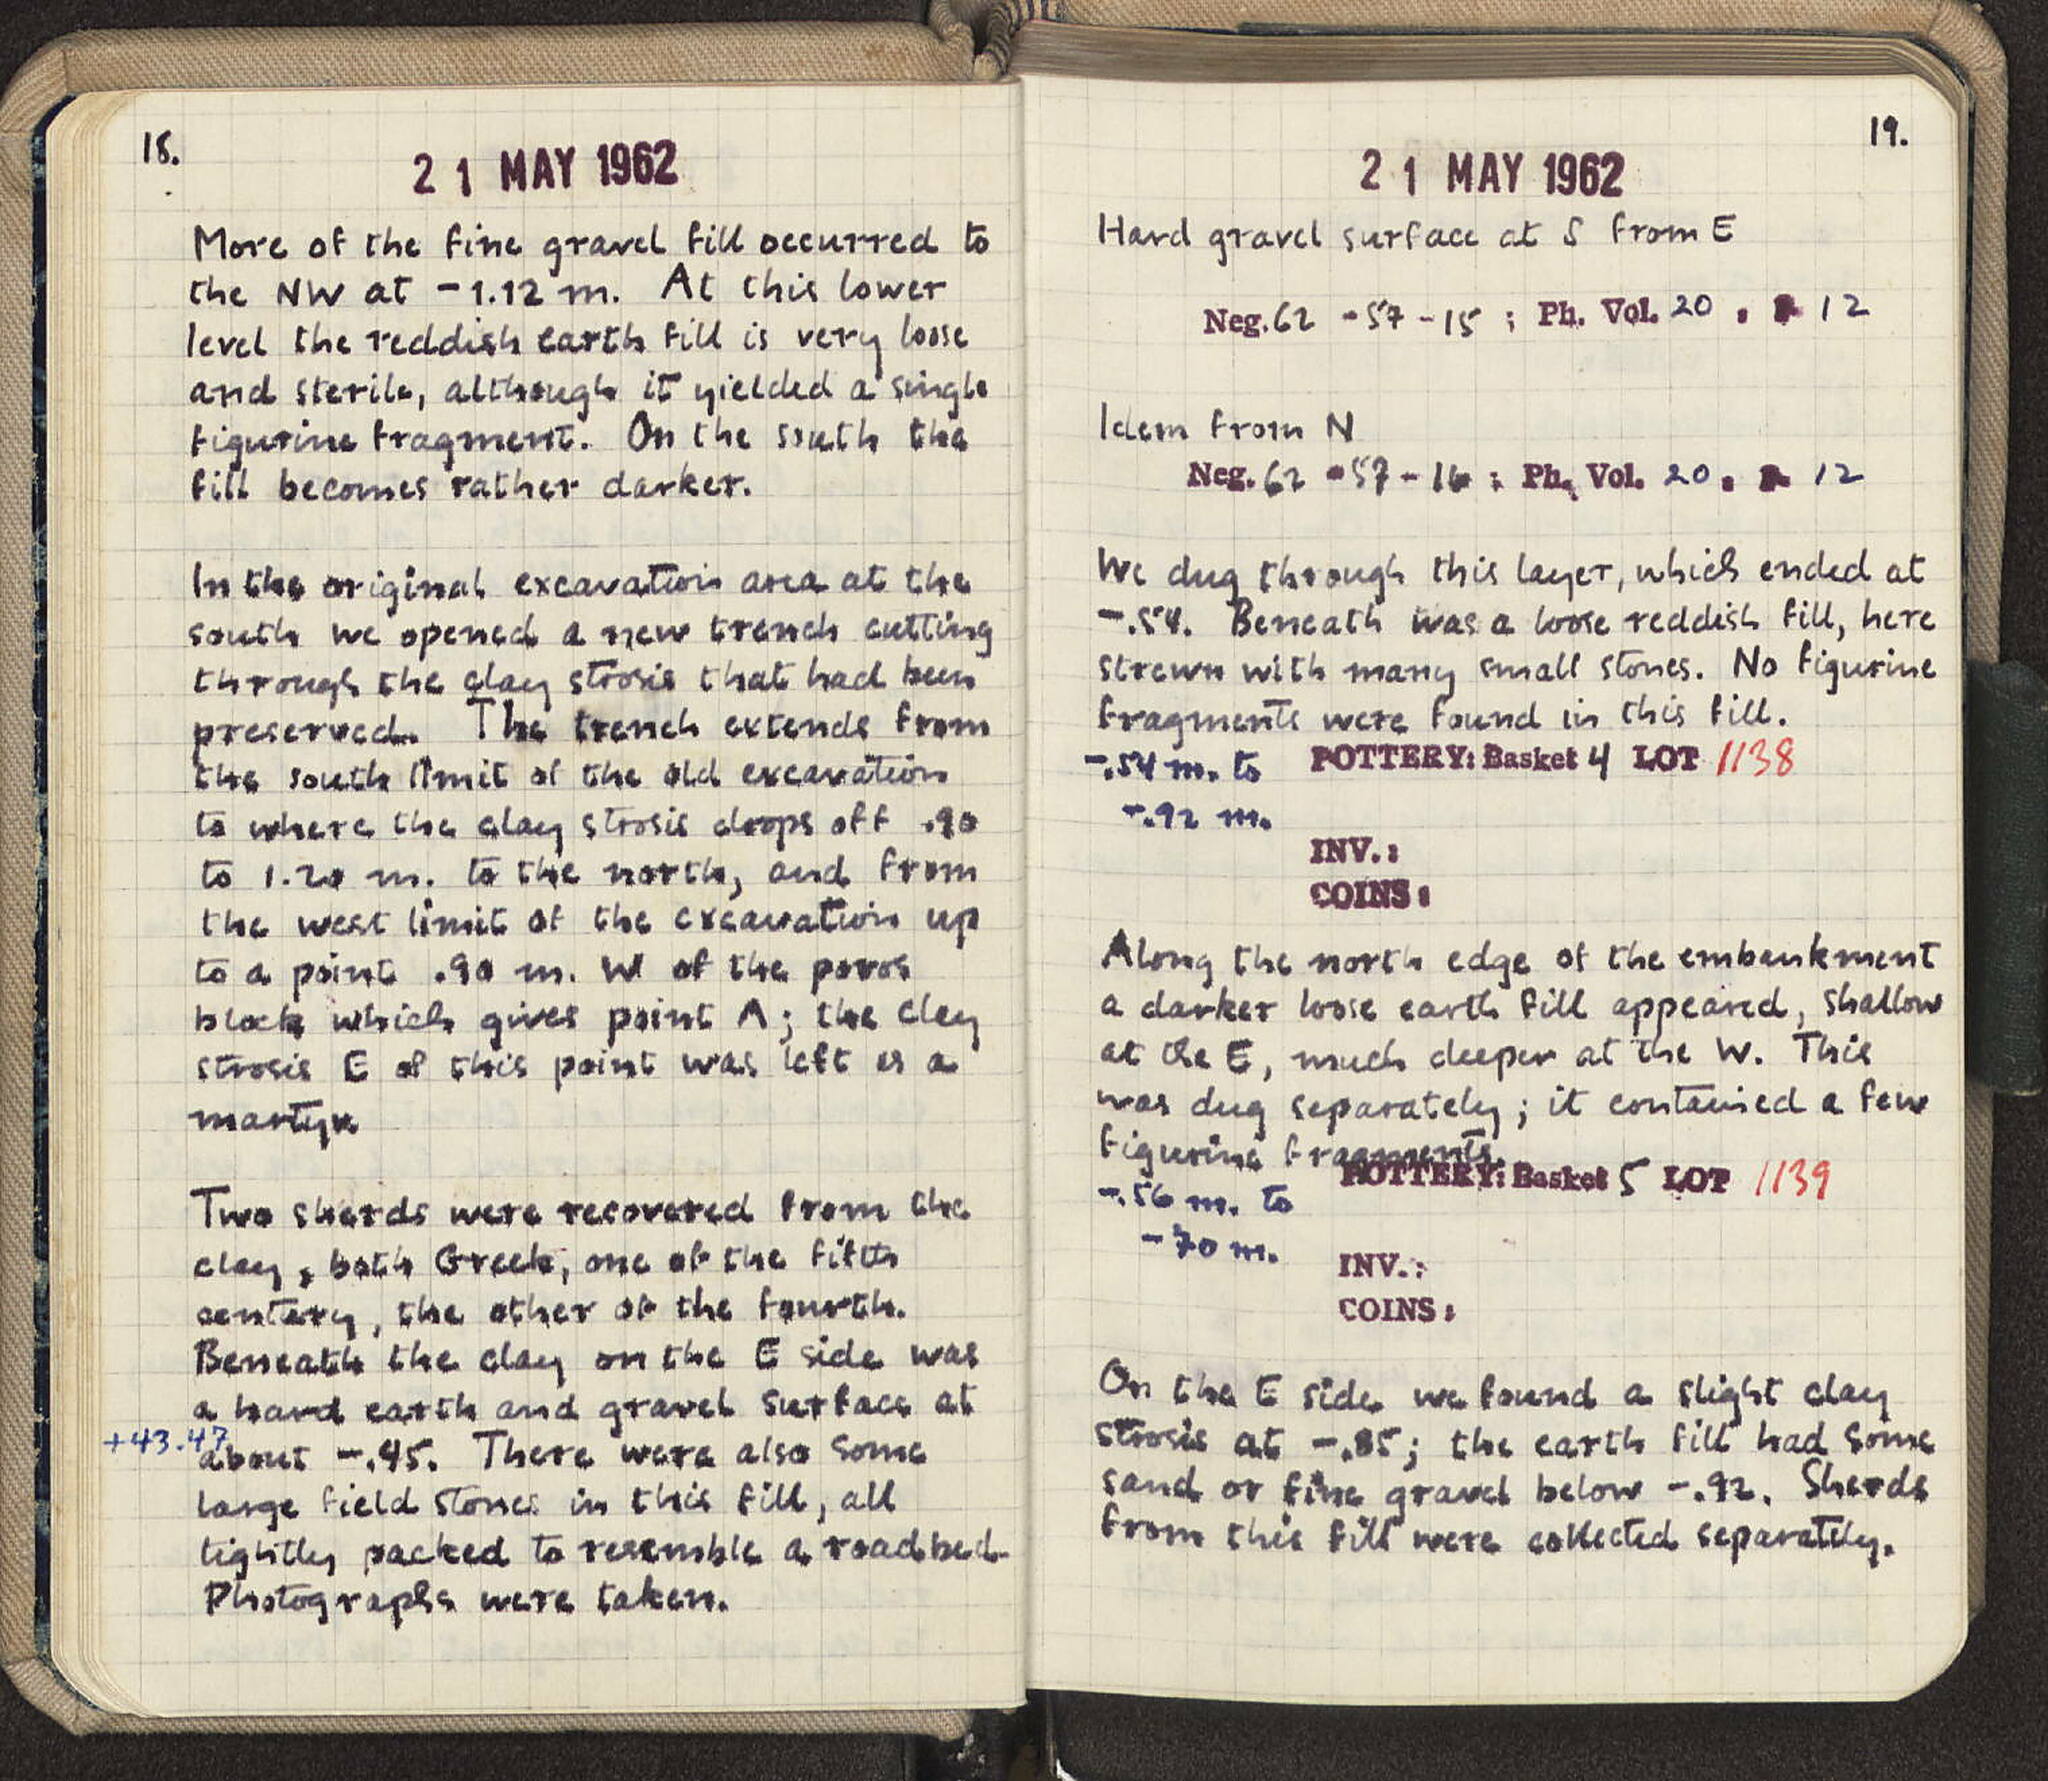 18.
21 MAY 1962
More of the fine gravel fill occurred to
the NW at -1.12 m. At this lower
level the reddish earth fill is very loose
and sterile, although it yielded a single
figurine fragment. On the south the
fill becomes rather darker.
In the original excavation area at the
south we opened a new trench cutting
through the clay strosis that had been
preserved. The trench extends from
the south limit of the old excavation
to where the clay strosis drops off .90
to 1.20 m. to the north, and from
the west limit of the excavation up
to a point .90 m. W of the poros
block which gives point A; the clay
strosis E of this point was left as a
martyr
Two sherds were recovered from the
clay, both Greek, one of the fifth
century, the other of the fourth.
Beneath the clay on the E side was
a hard earth and gravel surface at
+43.47
about -.45. There were also some
large field stones in this fill, all
tightly packed to resemble a roadbed.
Photographs were taken.
19.
21 MAY 1962
Hard gravel surface at S from E
Neg. 62 -57-15; Ph. Vol. 20, 12
Idem from N
Neg. 62 -57-16; Ph. Vol. 20, 12
We dug through this layer, which ended at
-.54. Beneath was a loose reddish fill, here
strewn with many small stones. No figurine
fragments were found in this fill.
-.54 m. to POTTERY: Basket 4 LOT 1138
-.92 m.
INV.:
COINS:
Along the north edge of the embankment
a darker loose earth fill appeared, shallow
at the E, much deeper at the W. This
was dug separately; it contained a few
figurine fragments.
POTTERY: Basket 5 LOT 1139
-.56 m. to
-70 m.
INV.:
COINS:
On the E side we found a slight clay
strosis at -.85; the earth fill had some
sand or fine gravel below -.92. Sherds
from this fill were collected separately.